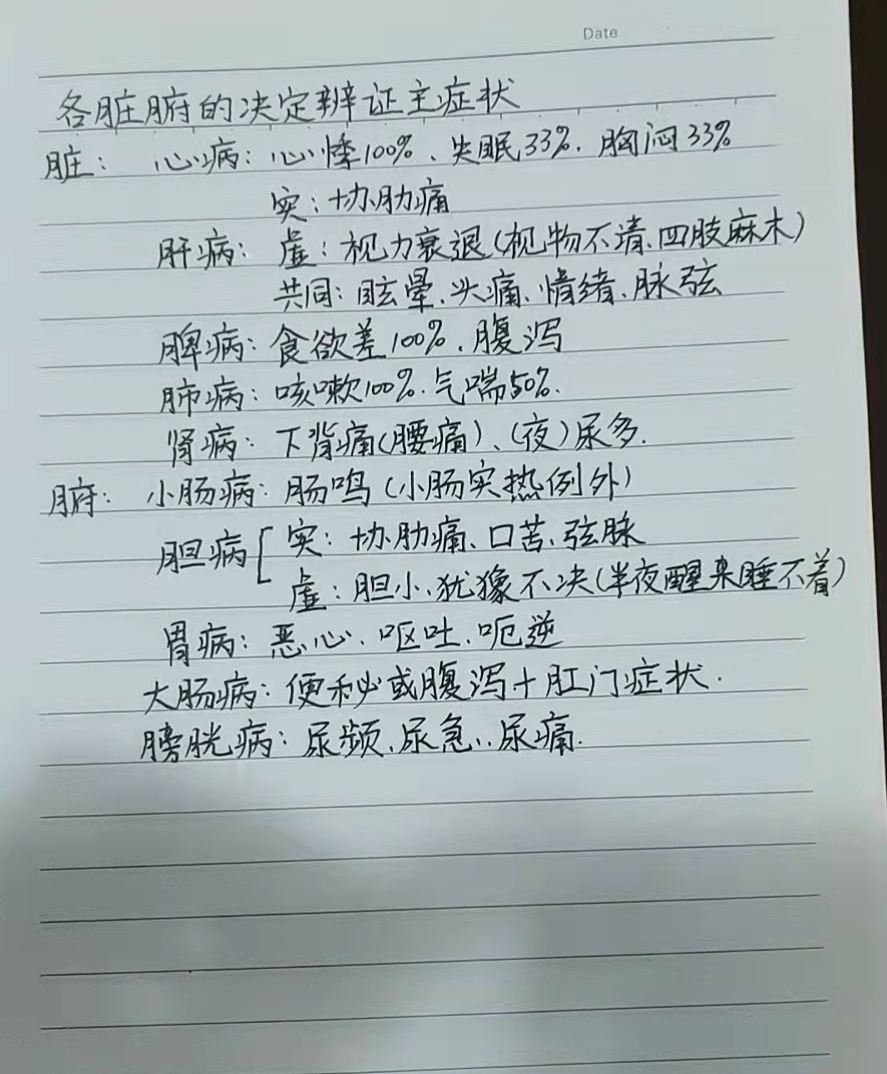 Date
各脏腑的决定辨证主症状
脏: 心病: 心悸100%、失眠33%. 胸闷33%
实: 协肋痛
肝病: 虚: 视力衰退(视物不清、四肢麻木)
共同: 眩晕、头痛、情绪、脉弦
脾病: 食欲差100%、腹泻
肺病: 咳嗽100%. 气喘50%.
肾病: 下背痛(腰痛)、(夜)尿多.
腑: 小肠病: 肠鸣(小肠实热例外)
胆病[ 实: 协肋痛、口苦、弦脉
虚: 胆小、犹豫不决(半夜醒来睡不着)
胃病: 恶心、呕吐、呃逆
大肠病: 便秘或腹泻+肛门症状.
膀胱病: 尿频、尿急、尿痛.